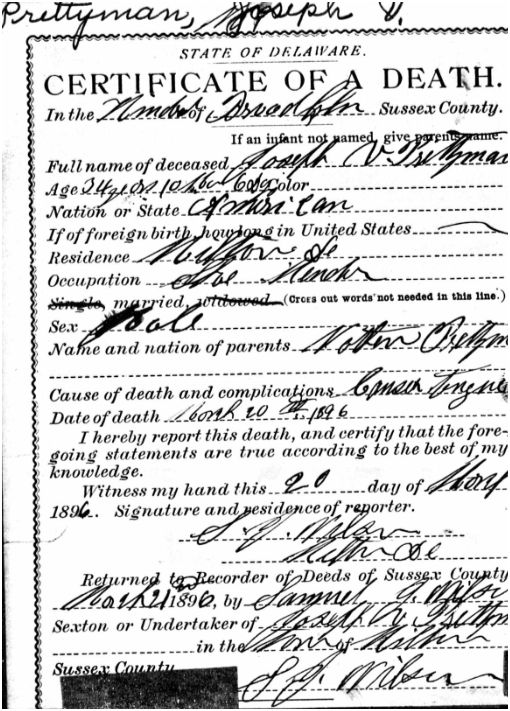 Prettyman, Joseph V.
STATE OF DELAWARE.
CERTIFICATE OF A DEATH.
In the of Sussex County.
If an infant not named, give parents name.
Full name of deceased Joseph V. Prettyman
Age 34 years 10 Color
Nation or State American
If of foreign birth how long in United States
Residence De
Occupation
Single, married, widowed. (Cross out words not needed in this line.)
Sex Male
Name and nation of parents Prettym
Cause of death and complications
Date of death March 20th, 1896
I hereby report this death, and certify that the fore-
going statements are true according to the best of my
knowledge.
Witness my hand this 20 day of
1896. Signature and residence of reporter.
S. J. Wilson
De
Returned to Recorder of Deeds of Sussex County
March 1896, by Samuel J. Wilson
Sexton or Undertaker of Joseph V. Prettym
in the of
Sussex County
S. J. Wilson